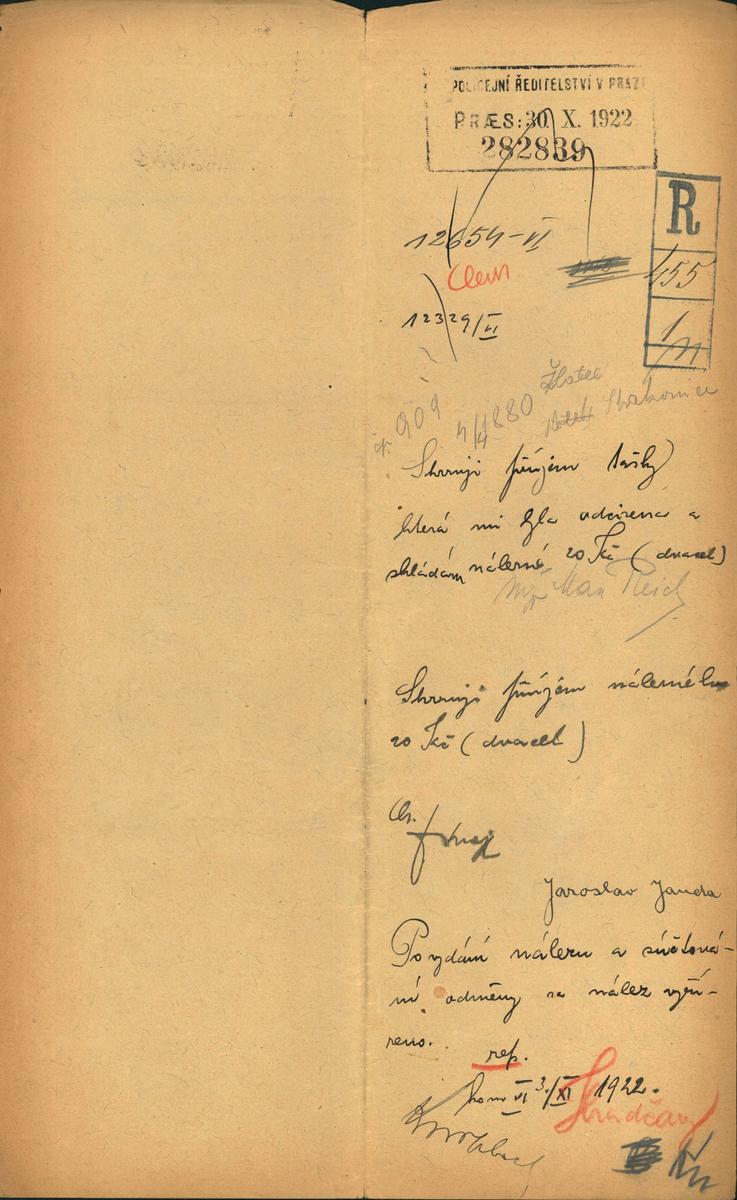 POLICEJNÍ ŘEDITELSTVÍ V PRAZE
PRÆS: 30. X. 1922
282839
R
455
12654-VI
12329/VI
čp. 909 4/4 1880 Strakonice
Stvrzuji příjem tašky
která mi byla odcizena a
skládám nálezné 20 Kč (dvacet)
Ing. Max Reich
Stvrzuji příjem nálezného
20 Kč (dvacet)
Jaroslav Janda
Po vydání nálezu a súčtová-
ní odměny za nález vyří-
zeno.
rep.
kom VI 3./XI 1922.
Hradčany